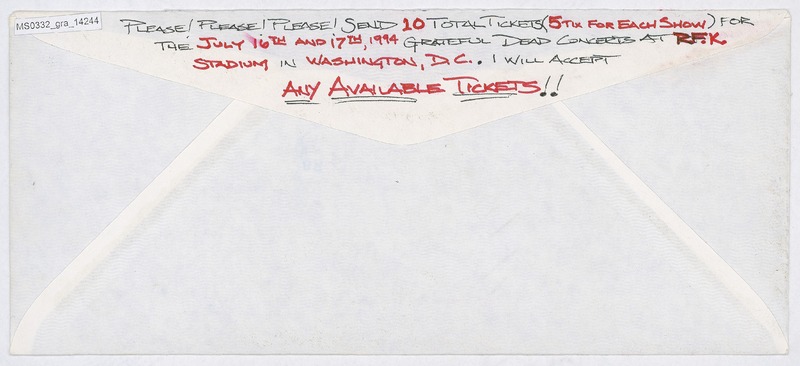 MS0332_gra_14244
PLEASE! PLEASE! PLEASE! SEND 10 TOTAL TICKETS (5 TIX FOR EACH SHOW) FOR
THE JULY 16TH AND 17TH, 1994 GRATEFUL DEAD CONCERTS AT RFK.
STADIUM IN WASHINGTON, D.C.. I WILL ACCEPT
ANY AVAILABLE TICKETS!!